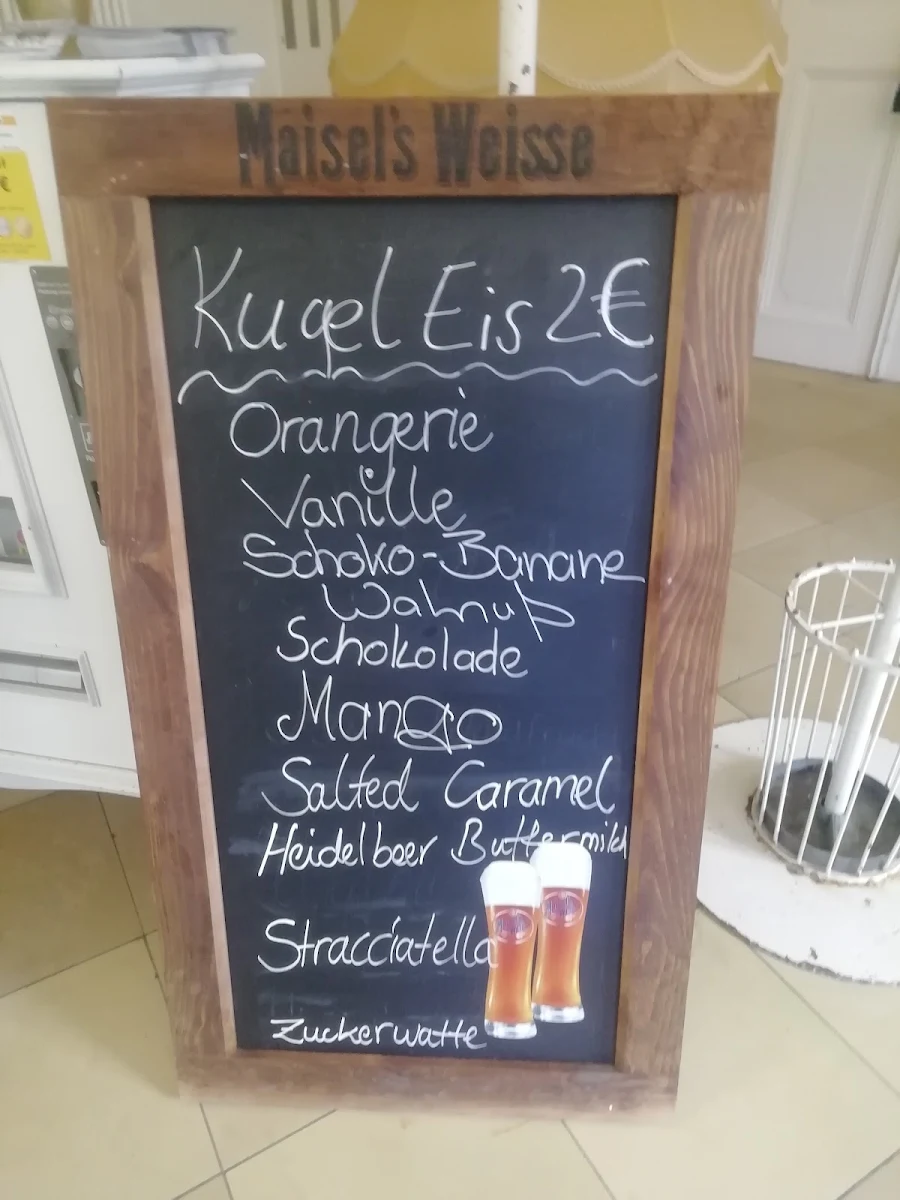 Maisel's Weisse
Kugel Eis 2€
Orangerie
Vanille
Schoko-Banane
Walnuß
Schokolade
Mango
Salted Caramel
Heidelbeer Buttermilch
Stracciatella
Zuckerwatte